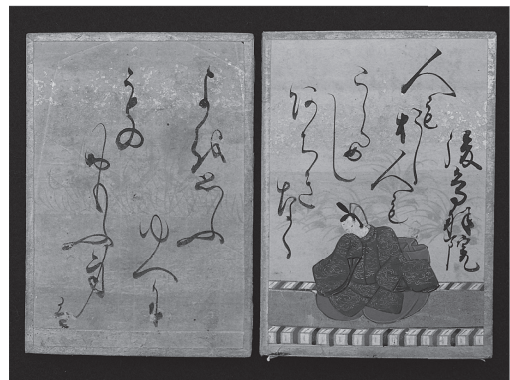 後鳥羽院
人もおし人も
うらめし
あちきなく
よを思ふ
ゆへに
もの
おもふ身
は